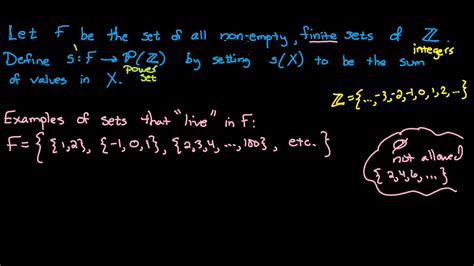 Let F be the set of all non-empty, finite sets of ℤ.
Define s: F → P(ℤ) by setting s(X) to be the sum
integers
power
set
of values in X.
ℤ={...,-3,-2,-1,0,1,2,...}
Examples of sets that "live" in F:
F={{1,2}, {-1,0,1}, {2,3,4,...,100}, etc.}
∅
not allowed
{2,4,6,...}